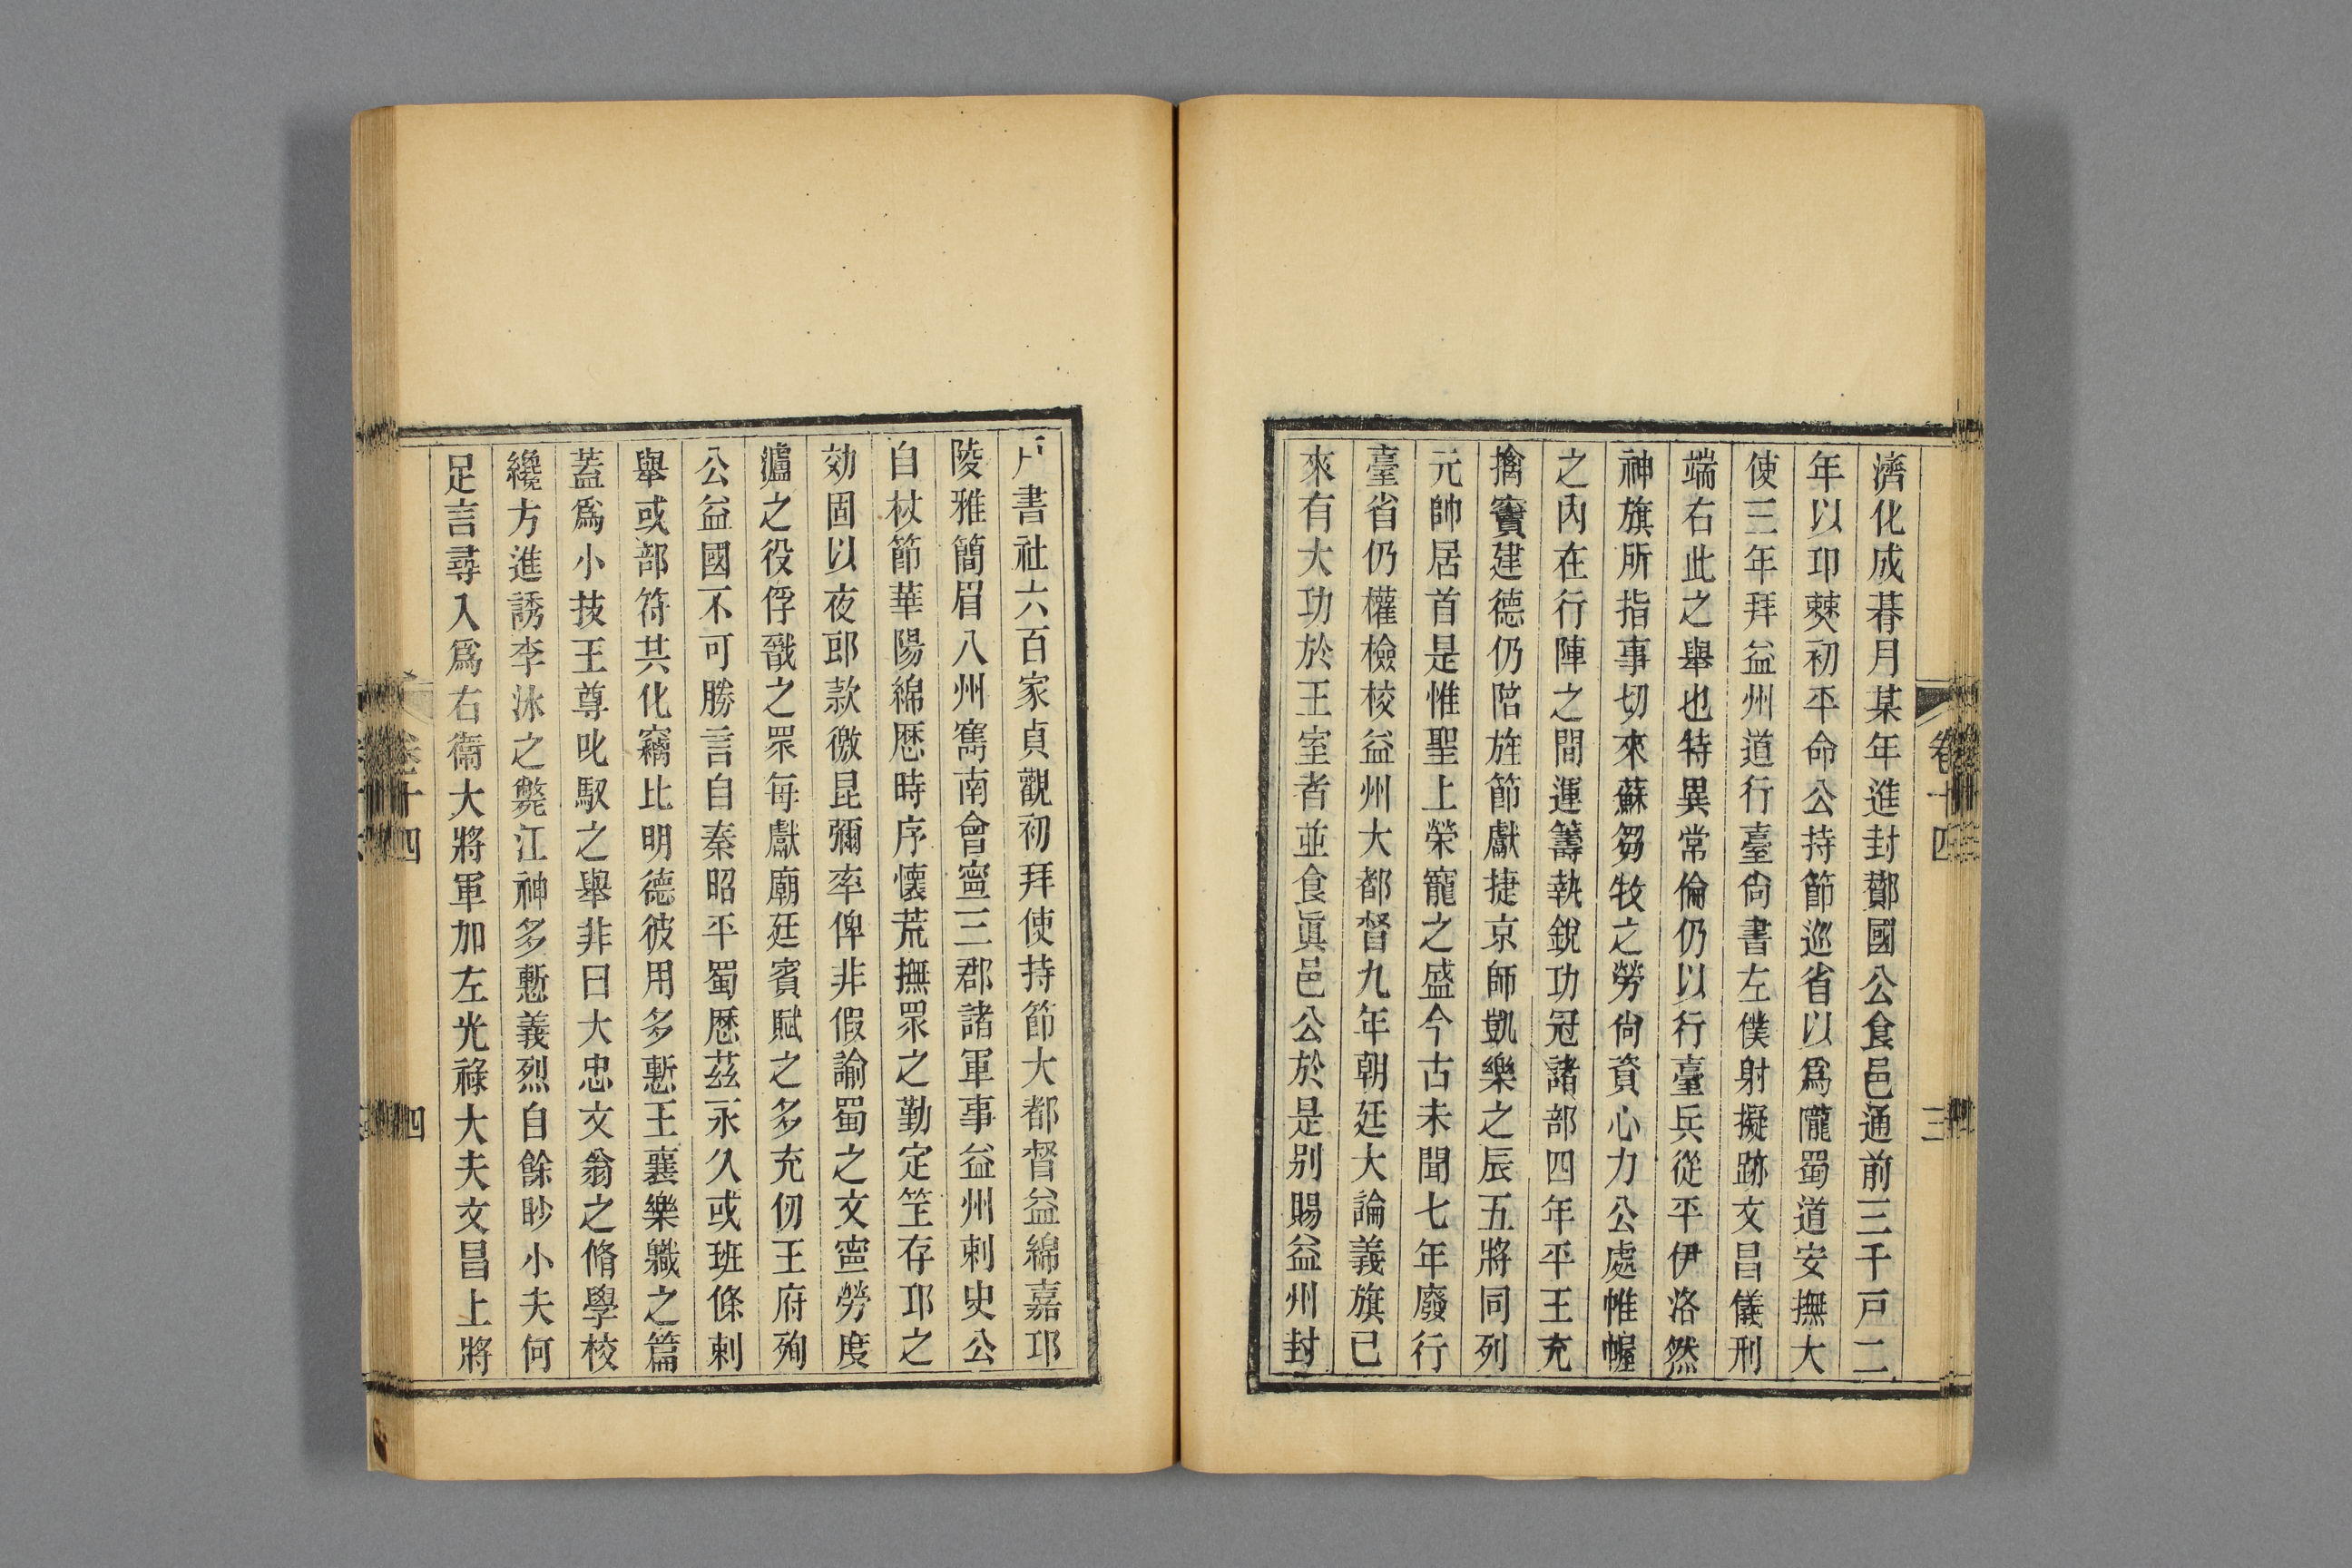 卷十四
三
濟化成朞月某年進封鄼國公食邑通前三千戸二
年以卭僰初平命公持節巡省以爲隴蜀道安撫大
使三年拜益州道行臺尙書左僕射擬跡文昌儀刑
端右此之舉也特異常倫仍以行臺兵從平伊洛然
神旗所指事切來蘇芻牧之勞尙資心力公處帷幄
之內在行陣之間運籌執銳功冠諸部四年平王充
擒竇建德仍陪旌節獻捷京師凱樂之辰五將同列
元帥居首是惟聖上榮寵之盛今古未聞七年廢行
臺省仍權檢校益州大都督九年朝廷大論義旗已
來有大功於王室者並食眞邑公於是別賜益州封
戸書社六百家貞觀初拜使持節大都督益綿嘉卭
陵雅簡眉八州寯南會寍三郡諸軍事益州刺史公
自杖節華陽綿歷時序懷荒撫眾之勤定笁存卭之
効固以夜郎款徼昆彌率俾非假諭蜀之文寍勞度
瀘之役俘馘之眾每獻廟廷賓賦之多充仞王府殉
公益國不可勝言自秦昭平蜀歷茲永久或班條刺
舉或部符共化竊比明德彼用多慙王襄樂軄之篇
蓋爲小技王尊叱馭之舉非曰大忠文翁之脩學校
纔方進誘李泳之斃江神多慙義烈自餘眇小夫何
足言尋入爲右衞大將軍加左光祿大夫文昌上將
卷十四
四